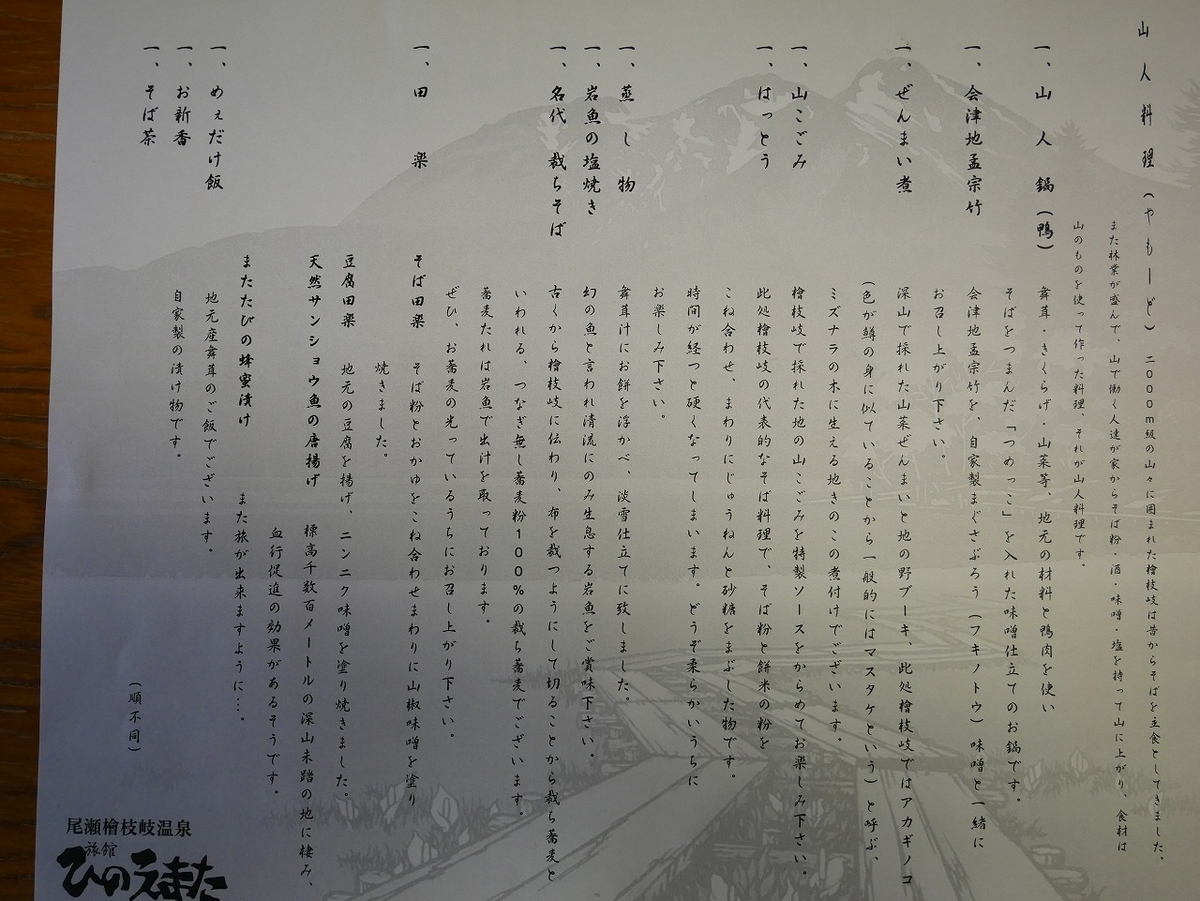 山人料理(やもーど) 二000m級の山々に囲まれた檜枝岐は昔からそばを主食としてきました。
また林業が盛んで、山で働く人達が家からそば粉・酒・味噌・塩を持って山に上がり、食材は
山のものを使って作った料理、それが山人料理です。
一、山人鍋(鴨) 舞茸・きくらげ・山菜等、地元の材料と鴨肉を使い
そばをつまんだ「つめっこ」を入れた味噌仕立てのお鍋です。
一、会津地孟宗竹 会津地孟宗竹を、自家製まぐさぶろう(フキノトウ)味噌と一緒に
お召し上がり下さい。
一、ぜんまい煮 深山で採れた山菜ぜんまいと地の野ブーキ、此処檜枝岐ではアカギノコ
(色が鱒の身に似ていることから一般的にはマスタケという)と呼ぶ、
ミズナラの木に生える地きのこの煮付けでございます。
一、山こごみ 檜枝岐で採れた地の山こごみを特製ソースをからめてお楽しみ下さい。
一、はっとう 此処檜枝岐の代表的なそば料理で、そば粉と餅米の粉を
こね合わせ、まわりにじゅうねんと砂糖をまぶした物です。
時間が経つと硬くなってしまいます。どうぞ柔らかいうちに
お楽しみ下さい。
一、蒸し物 舞茸汁にお餅を浮かべ、淡雪仕立てに致しました。
一、岩魚の塩焼き 幻の魚と言われ清流にのみ生息する岩魚をご賞味下さい。
一、名代 裁ちそば 古くから檜枝岐に伝わり、布を裁つようにして切ることから裁ち蕎麦と
いわれる、つなぎ無し蕎麦粉100%の裁ち蕎麦でございます。
蕎麦たれは岩魚で出汁を取っております。
ぜひ、お蕎麦の光っているうちにお召し上がり下さい。
一、田楽 そば田楽 そば粉とおかゆをこね合わせまわりに山椒味噌を塗り
焼きました。
豆腐田楽 地元の豆腐を揚げ、ニンニク味噌を塗り焼きました。
天然サンショウ魚の唐揚げ 標高千数百メートルの深山未踏の地に棲み、
血行促進の効果があるそうです。
またたびの蜂蜜漬け また旅が出来ますように…。
一、めぇだけ飯 地元産舞茸のご飯でございます。
一、お新香 自家製の漬け物です。
一、そば茶
(順不同)
尾瀬檜枝岐温泉
旅館
ひのえまた